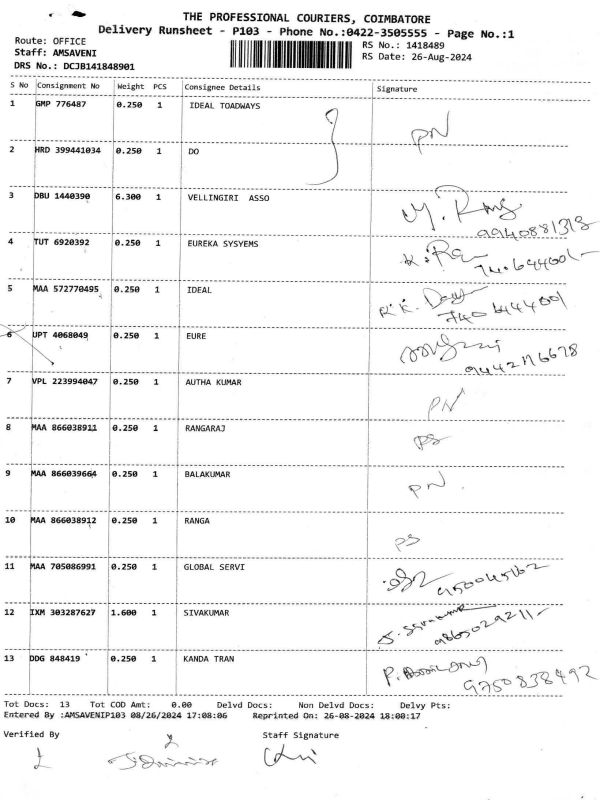 THE PROFESSIONAL COURIERS, COIMBATORE
Delivery Runsheet - P103 - Phone No.:0422-3505555 - Page No.:1
Route: OFFICE
RS No.: 1418489
Staff: AMSAVENI
RS Date: 26-Aug-2024
DRS No.: DCJB141848901
S No Consignment No Weight PCS Consignee Details Signature
1 GMP 776487 0.250 1 IDEAL TOADWAYS PN
2 HRD 399441034 0.250 1 DO
3 DBU 1440390 6.300 1 VELLINGIRI ASSO
9940881318
4 TUT 6920392 0.250 1 EUREKA SYSYEMS
5 MAA 572770495 0.250 1 IDEAL
6 UPT 4068049 0.250 1 EURE
7 VPL 223994047 0.250 1 AUTHA KUMAR PN
8 MAA 866038911 0.250 1 RANGARAJ PS
9 MAA 866039664 0.250 1 BALAKUMAR PN.
10 MAA 866038912 0.250 1 RANGA PS
11 MAA 705086991 0.250 1 GLOBAL SERVI
12 IXM 303287627 1.600 1 SIVAKUMAR
9865029211-
13 DDG 848419 0.250 1 KANDA TRAN
9750838492
Tot Docs: 13 Tot COD Amt: 0.00 Delvd Docs: Non Delvd Docs: Delvy Pts:
Entered By :AMSAVENIP103 08/26/2024 17:08:06 Reprinted On: 26-08-2024 18:00:17
Verified By Staff Signature